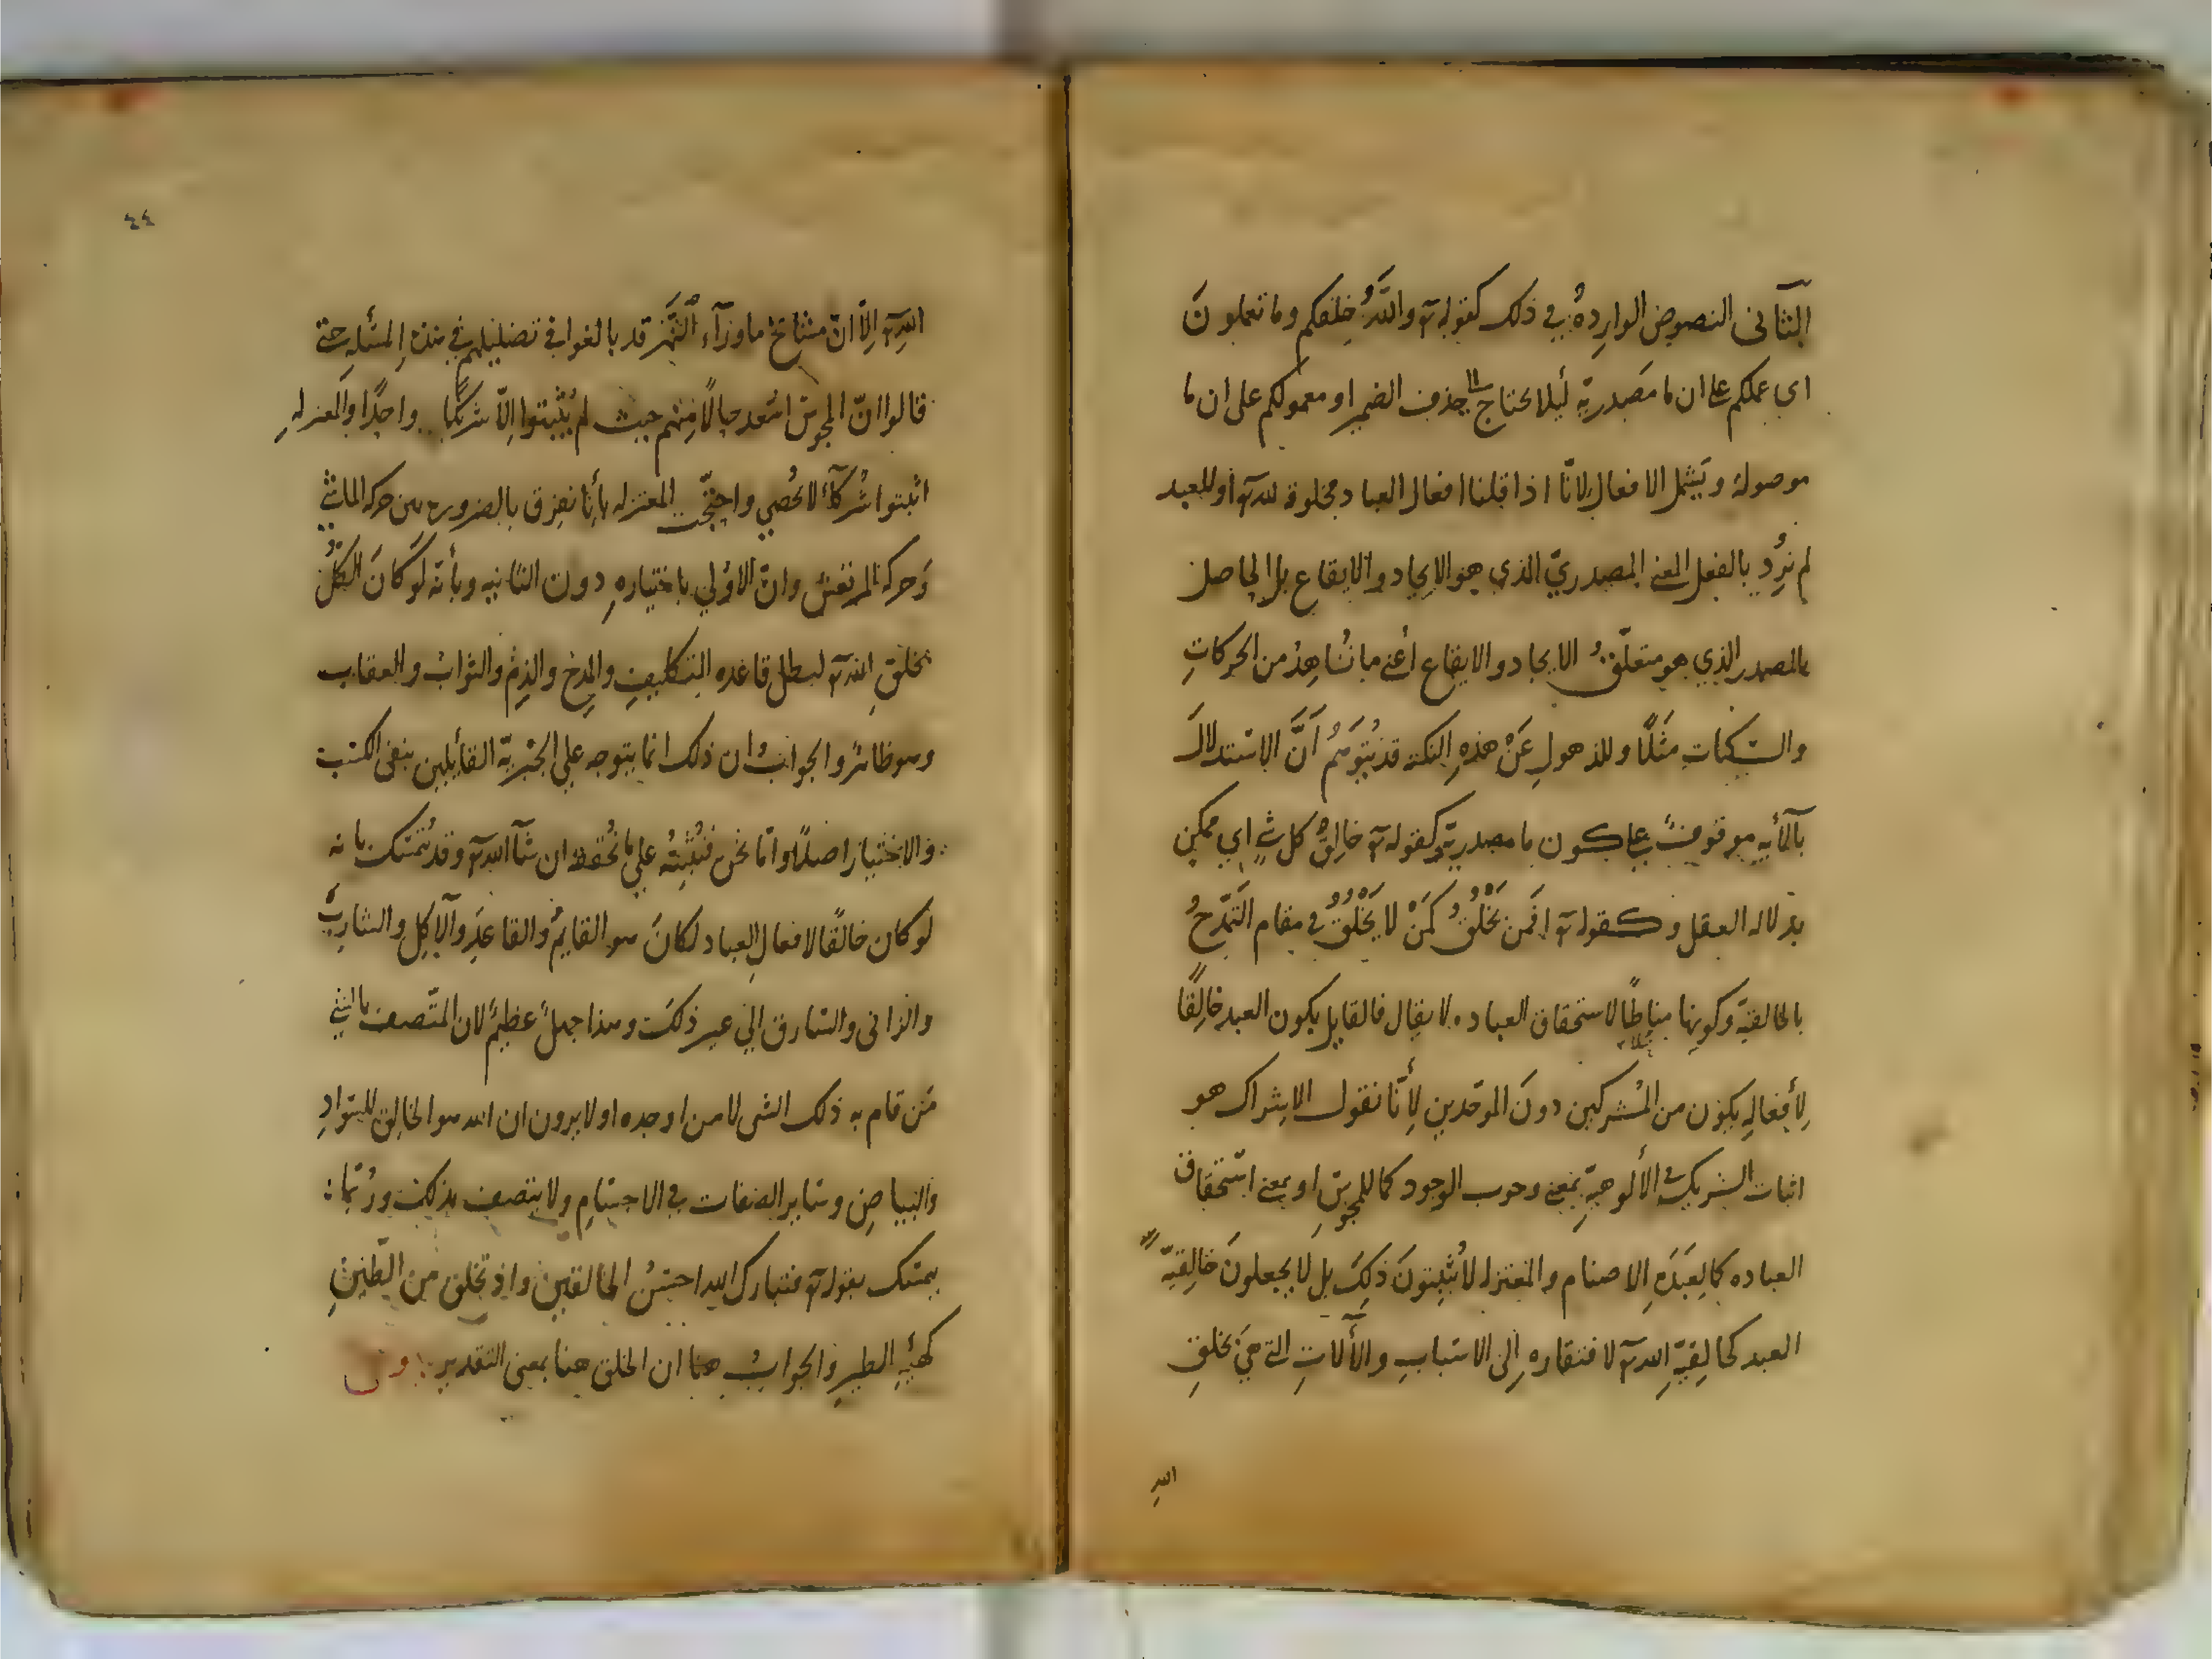 الثاني النصوص الواردة في ذلك كقوله تع والله خلقكم وما تعملون
اي عملكم على ان ما مصدرية ليلا يحتاج الى حذف الضمير او معمولكم على ان ما
موصولة ويشمل الافعال لانا اذا قلنا افعال العباد مخلوقة لله تع او للعبد
لم نرد بالفعل المعنى المصدري الذي هو الايجاد والايقاع بل الحاصل
بالمصدر الذي هو متعلق الايجاد والايقاع أعني ما نشاهد من الحركات
والسكنات مثلا وللذهول عن هذه النكتة قد يتوهم أن الاستدلال
بالآية موقوف على كون ما مصدرية وكقوله تع خالق كل شي اي ممكن
بدلالة العقل وكقوله تع افمن يخلق كمن لا يخلق في مقام التمدح
بالخالقية وكونها مناطا لاستحقاق العباده لا يقال فالقايل بكون العبد خالقا
لأفعاله يكون من المشركين دون الموحدين لأنا نقول الاشراك هو
اثبات الشريك في الألوهية بمعنى وجوب الوجود كما للمجوس او بمعنى استحقاق
العباده كما لعبدة الاصنام والمعتزله لا يثبتون ذلك بل لا يجعلون خالقية
العبد كخالقية الله تع لافتقاره إلى الاسباب والآلات التي هي بخلق
الله
٤٤
الله تع إلا ان مشايخ ماوراء النهر قد بالغوا في تضليلهم في هذه المسئلة حتى
قالوا ان المجوس اسعد حالا منهم حيث لم يثبتوا إلا شريكا واحدا والمعتزله
اثبتوا شركاء لا تحصى واحتجت المعتزله بأنا نفرق بالضروره بين حركة الماشي
وحركة المرتعش وان الاولى باختياره دون الثانيه وبأنه لو كان الكل
بخلق الله تع لبطل قاعده التكليف والمدح والذم والثواب والعقاب
وهو ظاهر والجواب ان ذلك انما يتوجه على الجبرية القائلين بنفي الكسب
والاختيار اصلا واما نحن فنثبته على ما نحققه ان شاء الله تع وقد يتمسك بانه
لو كان خالقا لافعال العباد لكان هو القايم والقاعد والآكل والشارب
والزاني والسارق الى غير ذلك وهذا جهل عظيم لان المتصف بالشي
من قام به ذلك الشى لا من اوجده او لا يرون ان الله هو الخالق للسواد
والبياض وساير الصفات في الاجسام ولا يتصف بذلك وربما
يتمسك بقوله تع فتبارك الله احسن الخالقين واذ تخلق من الطين
كهئية الطير والجواب هنا ان الخلق هنا بمعنى التقدير